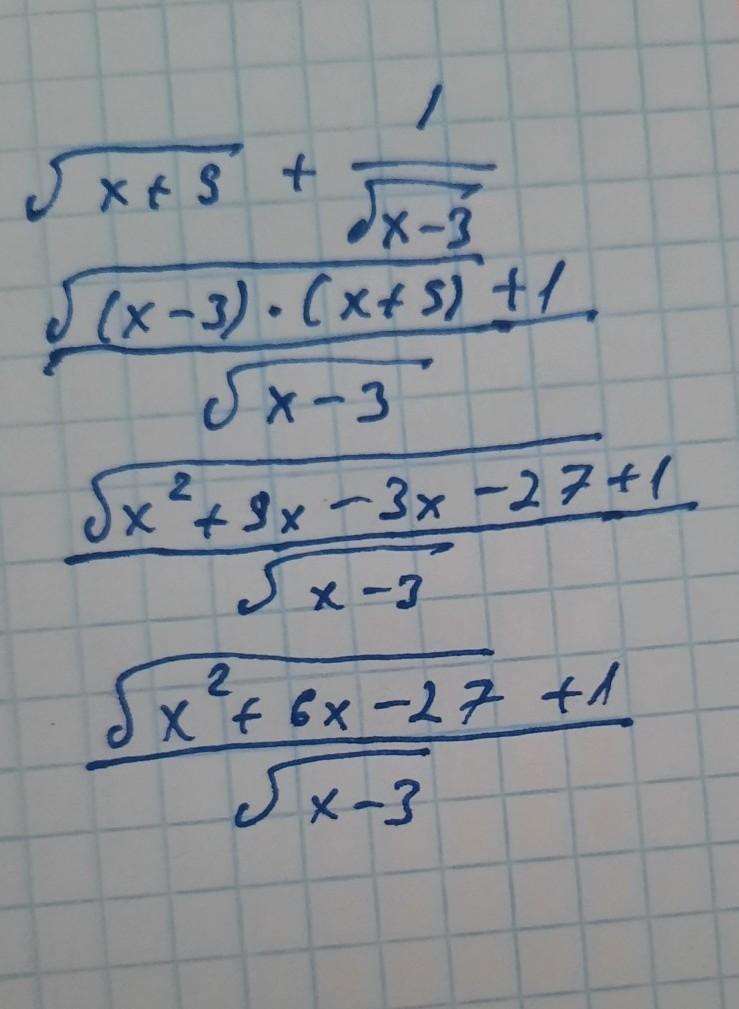 √(x+9) + 1/√(x-3)
(√((x-3)·(x+9)) +1)/√(x-3)
(√(x²+9x-3x-27) +1)/√(x-3)
(√(x²+6x-27) +1)/√(x-3)